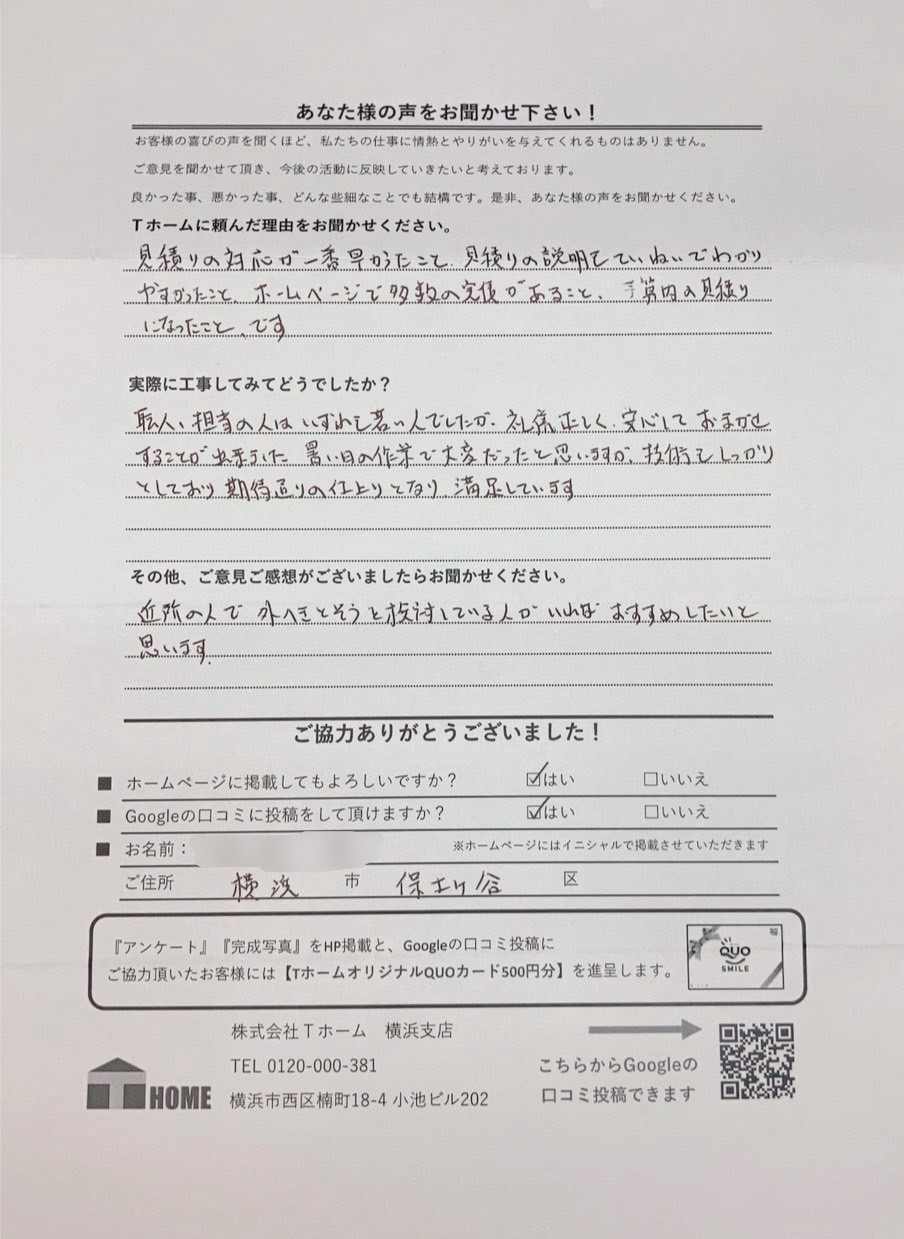 あなた様の声をお聞かせ下さい！
お客様の喜びの声を聞くほど、私たちの仕事に情熱とやりがいを与えてくれるものはありません。
ご意見を聞かせて頂き、今後の活動に反映していきたいと考えております。
良かった事、悪かった事、どんな些細なことでも結構です。是非、あなた様の声をお聞かせください。
Tホームに頼んだ理由をお聞かせください。
見積りの対応が一番早かったこと、見積りの説明もていねいでわかり
やすかったこと、ホームページで多数の実績があること、予算内の見積り
になったこと、です
実際に工事してみてどうでしたか？
職人、担当の人はいずれも若い人でしたが、礼儀正しく、安心しておまかせ
することが出来ました 暑い日の作業で大変だったと思いますが、技術もしっかり
としており期待通りの仕上りとなり、満足しています
その他、ご意見ご感想がございましたらお聞かせください。
近所の人で 外へきとそうと検討している人がいればおすすめしたいと
思います。
ご協力ありがとうございました！
■ ホームページに掲載してもよろしいですか？ ☑はい □いいえ
■ Googleの口コミに投稿をして頂けますか？ ☑はい □いいえ
■ お名前： ※ホームページにはイニシャルで掲載させていただきます
ご住所 横浜 市 保土ケ谷 区
『アンケート』『完成写真』をHP掲載と、Googleの口コミ投稿に
ご協力頂いたお客様には【TホームオリジナルQUOカード500円分】を進呈します。
QUO
SMILE
株式会社Tホーム 横浜支店
TEL 0120-000-381
横浜市西区楠町18-4 小池ビル202
T HOME
こちらからGoogleの
口コミ投稿できます